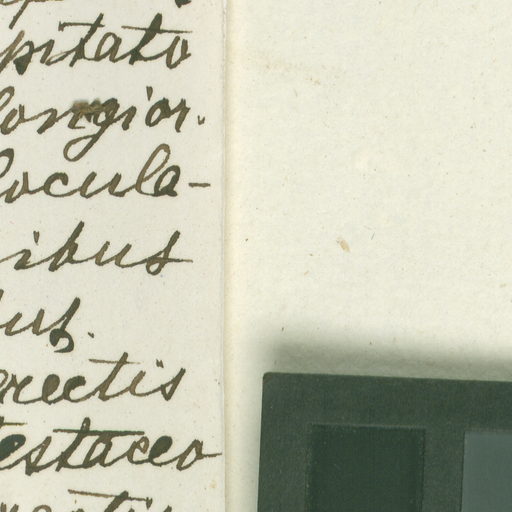 pitato
longior.
locula-
ibus
us.
erectis
testaceo